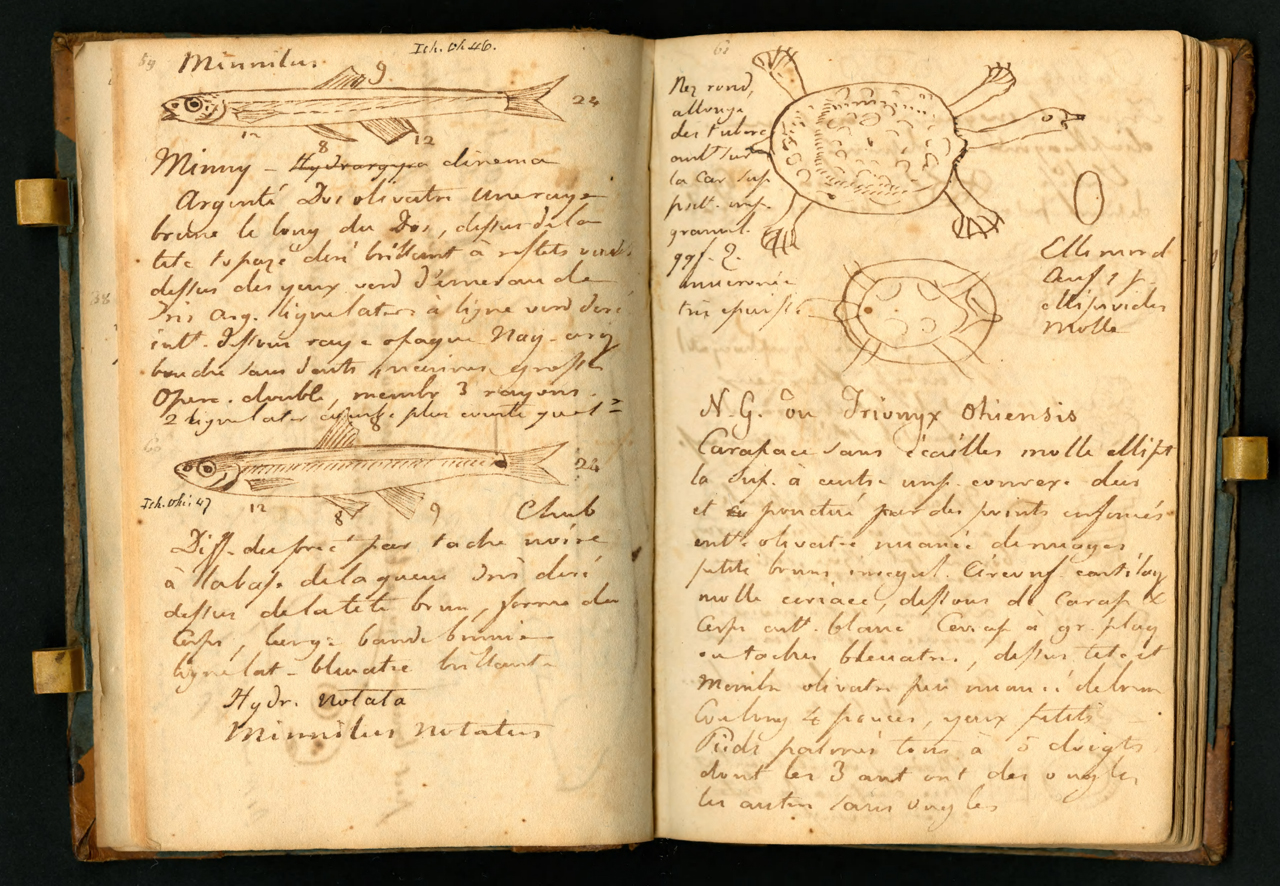 59 Minnilus
Ich. Oh 46.
9
24
12
8
12
Minny – Hydrargyra dinema
Argenté Dos olivatre une raye
brune le long du Dos, dessus de la
tete topaze doré brillant à reflets verds
dessus des yeux verd d'emeraude
Iris arg. ligne later à ligne verd doré
raye opaque Nag. arg
bouche sans dents narines
Operc. double, membr 3 rayons.
2 ligne later plus courte que
60
8
24
Ich. Ohi. 47
12
8
9
Chub
Diff. du prec par tache noire
à la base de la queue Iris doré
dessus de la tete brun, forme du
Corps, large bande brune
ligne lat. bleuatre brillante
Hydr. notata
Minnilus notatus
61
Nez rond,
allongé
des tuberc
ant. sur
la Car sup
post. inf.
granul.
mucronée
tres
Elle mord
Oeufs
ellipsoides
molle
N. G. ou Trionyx Ohiensis
Carapace sans écailles molle ellipt
la surf. à centre un p. convexe dur
et ponctué par des points enfoncés
olivatre nuancé de nuages
petits bruns irregul. Circonf. cartilag
molle coriace, dessous de Carap &
Corps ant. blanc à gr. plaq
ou taches bleuatres, dessus tete et
Membr olivatre peu nuancé de brun
Cou long 4 pouces, yeux petits
Pieds palmés tous à 5 doigts
dont les 3 ant ont des ongles
les autres sans ongles